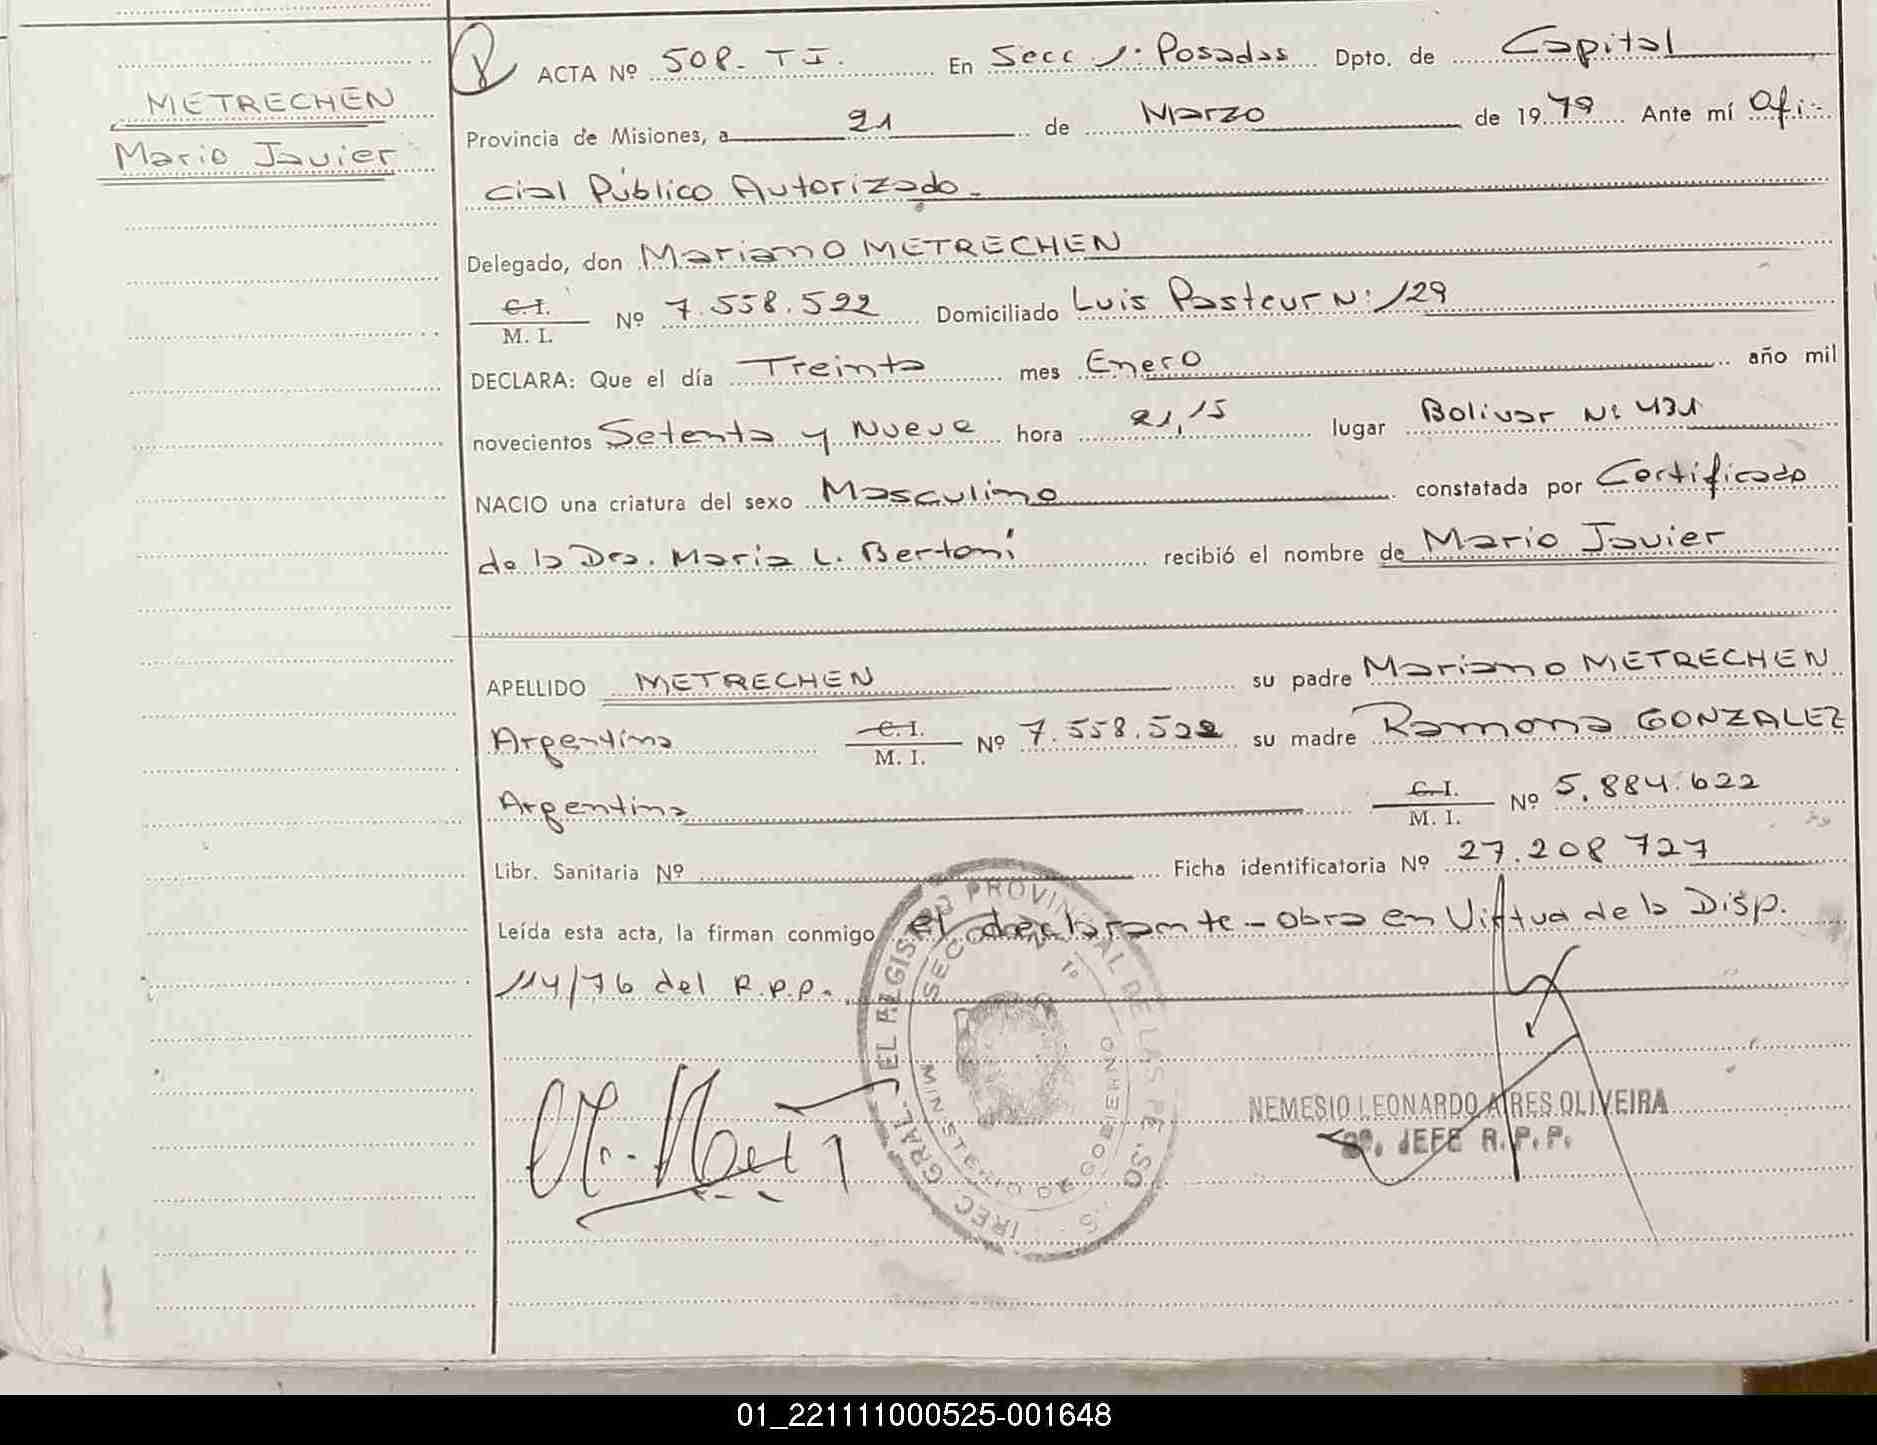 METRECHEN
Mario Javier
ACTA Nº 508. T I. En Secc 1: Posadas Dpto. de Capital
Provincia de Misiones, a 21 de Marzo de 1979 Ante mí Ofi-
cial Público Autorizado.
Delegado, don Mariano METRECHEN
C.I. M. I. Nº 7.558.522 Domiciliado Luis Pasteur Nº 129
DECLARA: Que el día Treinta mes Enero año mil
novecientos Setenta y Nueve hora 21,15 lugar Bolivar Nº 431
NACIO una criatura del sexo Masculino constatada por Certificado
de la Dra. Maria L. Bertoni recibió el nombre de Mario Javier
APELLIDO METRECHEN su padre Mariano METRECHEN
Argentina C.I. M. I. Nº 7.558.522 su madre Ramona GONZALEZ
Argentina C.I. M. I. Nº 5.884.622
Libr. Sanitaria Nº Ficha identificatoria Nº 27.208 727
Leída esta acta, la firman conmigo el declarante - obra en Virtud de la Disp.
114/76 del R.P.P.
REGISTRO PROVINCIAL DE LAS PERSONAS
SECCION 1º
MINISTERIO DE GOBIERNO
NEMESIO LEONARDO AIRES OLIVEIRA
JEFE R. P. P.
01_221111000525-001648